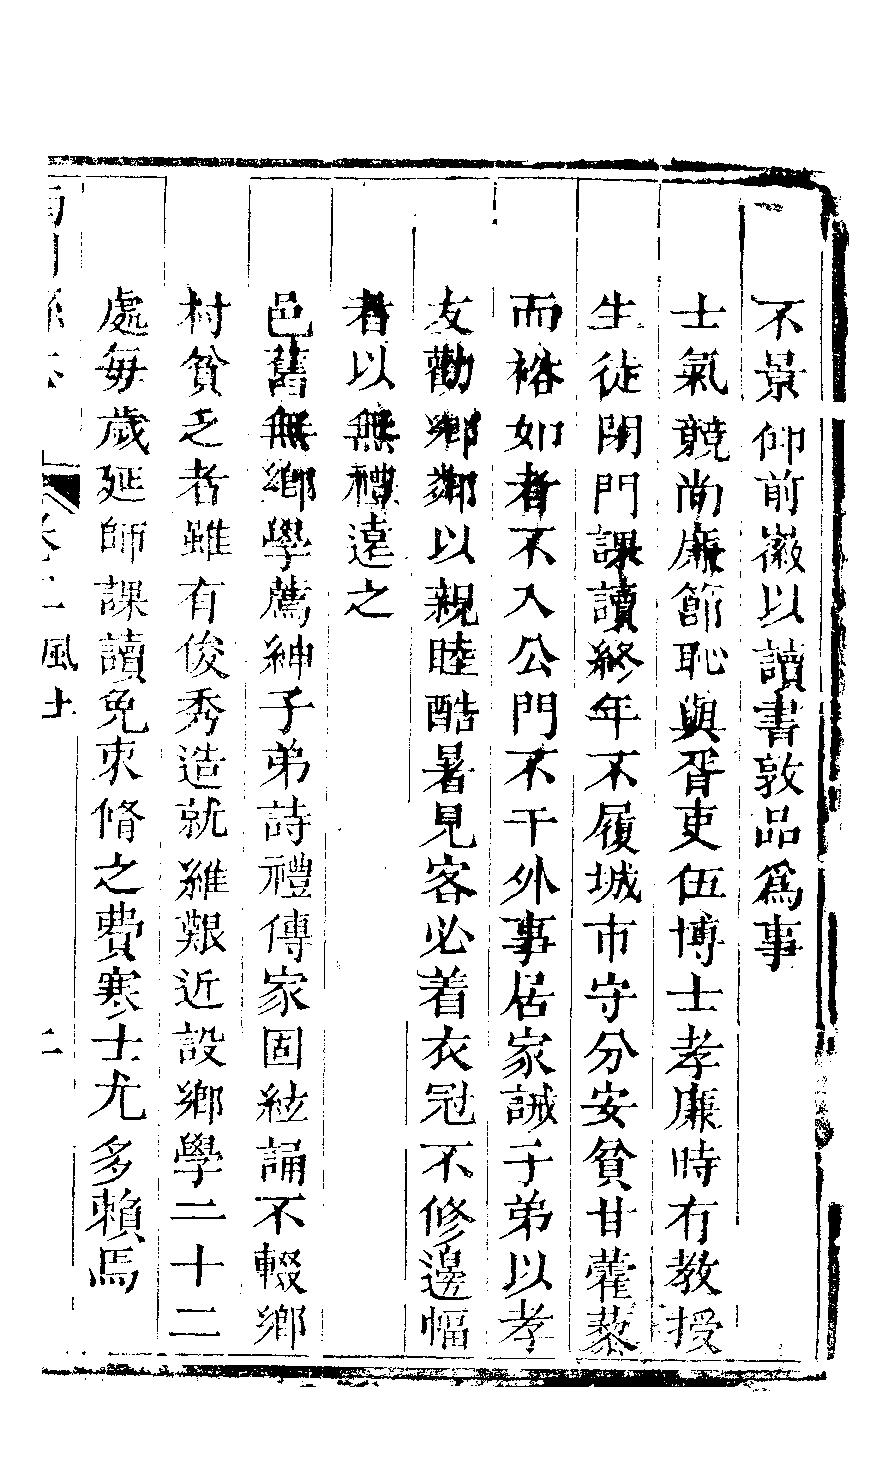 不景仰前徽以讀書敦品爲事
士氣競尚廉節恥與胥吏伍博士孝廉時有教授
生徒閉門課讀終年不履城市守分安貧甘藿藜
而裕如者不入公門不干外事居家誡子弟以孝
友勸鄉鄰以親睦酷暑見客必着衣冠不修邊幅
者以無禮遠之
邑舊無鄉學薦紳子弟詩禮傳家固絃誦不輟鄉
村貧乏者雖有俊秀造就維艱近設鄉學二十二
處每歲延師課讀免束脩之費寒士尤多賴焉
卷二風土 二